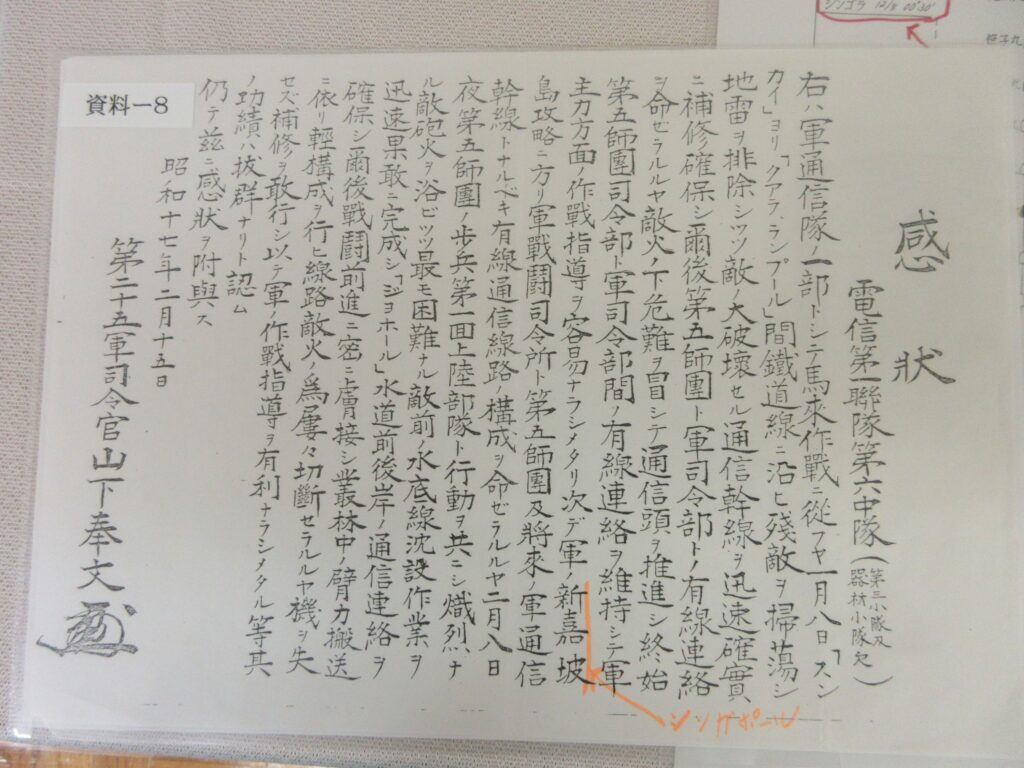 シンゴラ 12/8 00'30'
資料－8
感狀
電信第一聯隊第六中隊(第三小隊及
器材小隊欠)
右ハ軍通信隊ノ一部トシテ馬來作戰ニ從フヤ一月八日「スン
カイ」ヨリ「クアラ、ランプール」間鐵道線ニ沿ヒ残敵ヲ掃蕩シ
地雷ヲ排除シツツ敵ノ大破壞セル通信幹線ヲ迅速確實
ニ補修確保シ爾後第五師團ト軍司令部トノ有線連絡
ヲ命ゼラルルヤ敵火ノ下危難ヲ冒シテ通信頭ヲ推進シ終始
第五師團司令部ト軍司令部間ノ有線連絡ヲ維持シテ軍
主力方面ノ作戰指導ヲ容易ナラシメタリ次デ軍ノ新嘉坡
シンガポール
島攻略ニ方リ軍戰鬪司令所ト第五師團及將來ノ軍通信
幹線トナルベキ有線通信線路ノ構成ヲ命ゼラルルヤ二月八日
夜第五師團ノ步兵第一面上陸部隊ト行動ヲ共ニシ熾烈ナ
ル敵砲火ヲ浴ビツツ最モ困難ナル敵前ノ水底線沈設作業ヲ
迅速果敢ニ完成シ「ジョホール」水道前後岸ノ通信連絡ヲ
確保シ爾後戰鬪前進ニ密ニ膚接シ叢林中ノ臂力搬送
ニ依リ輕構成ヲ行ヒ線路敵火ノ爲屢々切斷セラルルヤ機ヲ失
セズ補修ヲ敢行シ以テ軍ノ作戰指導ヲ有利ナラシメタル等其
ノ功績ハ拔群ナリト認ム
仍テ茲ニ感狀ヲ附與ス
昭和十七年二月十五日
第二十五軍司令官山下奉文